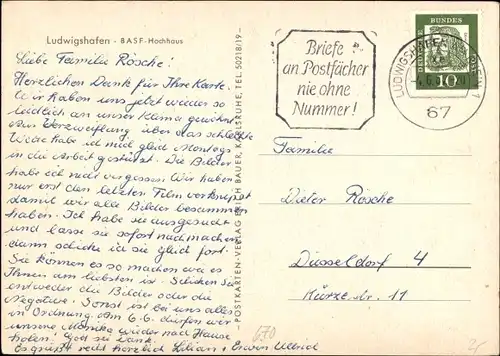 Ludwigshafen - BASF-Hochhaus
Liebe Familie Rösche!
Herzlichen Dank für Ihre Karte.
Wir haben uns jetzt wieder so
leidlich an unser Klima gewöhnt.
Aus Verzweiflung über das schlechte
habe ich mich gleich Montags
in die Arbeit gestürzt. Die Bilder
habe ich nicht vergessen. Wir haben
nur erst den letzten Film verknipst
damit wir alle Bilder beisammen
haben. Ich habe sie ausgesucht
und lasse sie sofort nachmachen
dann schicke ich sie gleich fort.
Sie können es so machen wie es
Ihnen am liebsten ist. Schicken Sie
entweder die Bilder oder die
Negative. Sonst ist bei uns alles
in Ordnung. Am 6.6. dürfen wir
unsere Monika wieder nach Hause
holen. Gott sei Dank.
Es grüßt recht herzlich Lilian u. Erwin Ullrich
POSTKARTEN-VERLAG ERICH BAUER, KARLSRUHE, TEL. 50218/19
Briefe
an Postfächer
nie ohne
Nummer!
LUDWIGSHAFEN
67
DEUTSCHE BUNDESPOST
10
Familie
Dieter Rösche
Düsseldorf 4
Kürze str. 11